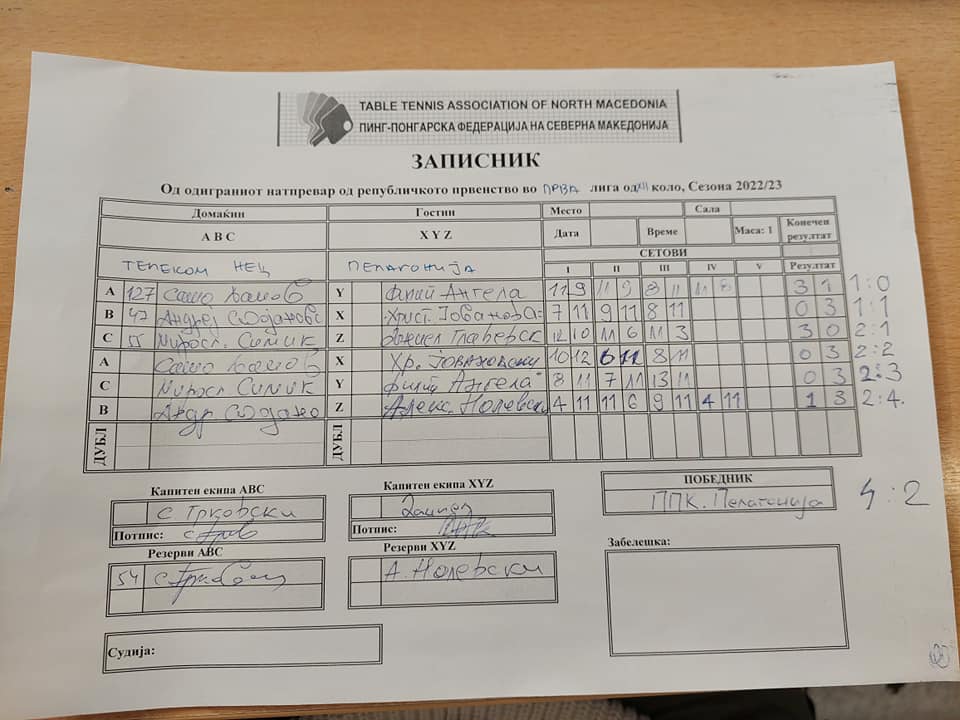 TABLE TENNIS ASSOCIATION OF NORTH MACEDONIA
ПИНГ-ПОНГАРСКА ФЕДЕРАЦИЈА НА СЕВЕРНА МАКЕДОНИЈА
ЗАПИСНИК
Од одиграниот натпревар од републичкото првенство во ПРВА лига од XII коло, Сезона 2022/23
Домаќин Гостин Место Сала
A B C X Y Z Дата Време Маса: 1 Конечен резултат
СЕТОВИ
ТЕЛЕКОМ НЕЦ ПЕЛАГОНИЈА I II III IV V Резултат
A 127 Y Ангела 11 9 11 9 8 11 11 8 3 1 1:0
B 47 Андреј X Христ. 7 11 9 11 8 11 0 3 1:1
C 55 Миросл. Симиќ Z 12 10 11 6 11 3 3 0 2:1
A X Хр. 10 12 6 11 8 11 0 3 2:2
C Миросл Симиќ Y Ангела 8 11 7 11 13 11 0 3 2:3
B Андр Z Алекс. Нолевски 4 11 11 6 9 11 4 11 1 3 2:4.
ДУБЛ ДУБЛ
Капитен екипа ABC Капитен екипа XYZ ПОБЕДНИК
С Трковски ППК. Пелагонија 4:2
Потпис: Потпис:
Резерви ABC Резерви XYZ Забелешка:
54 А. Нолевски
Судија: